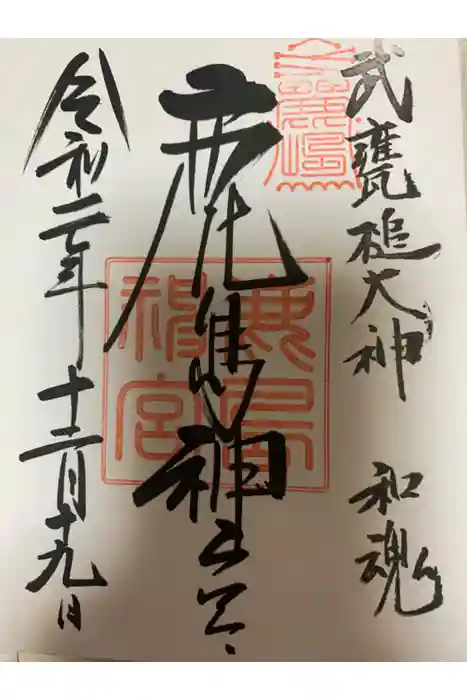 武甕槌大神 和魂
鹿島神宮
令和二年十二月十九日
鹿島
神宮